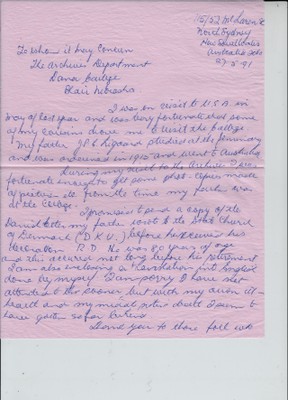 15/52 McLaren St
North Sydney
New South Wales
Australia 2060
27.5.91
To whom it May Concern
The Archives Department
Dana College
Blair Nebraska
I was on visit to U.S.A. in
May of last year and was very fortunate that some
of my cousins drove me to visit the College
My father J.P.C. studied at the Seminary
and was ordained in 1915 and went to Australia
During my visit to the Archives I was
fortunate enough to get some photo copies made
of pictures etc from the time my father was
at the College.
I promised to send a copy of the
Danish letter my father wrote to the State Church
of Denmark (D.K.U.) before he received his
R.D. He was 80 years of age
and this occured not long before his retirement
I am also enclosing a translation into English
done by myself. I am sorry I have not
attended to this sooner but with my own ill-
health and my I seem to
have gotten so far behind
Thank you to those folk who